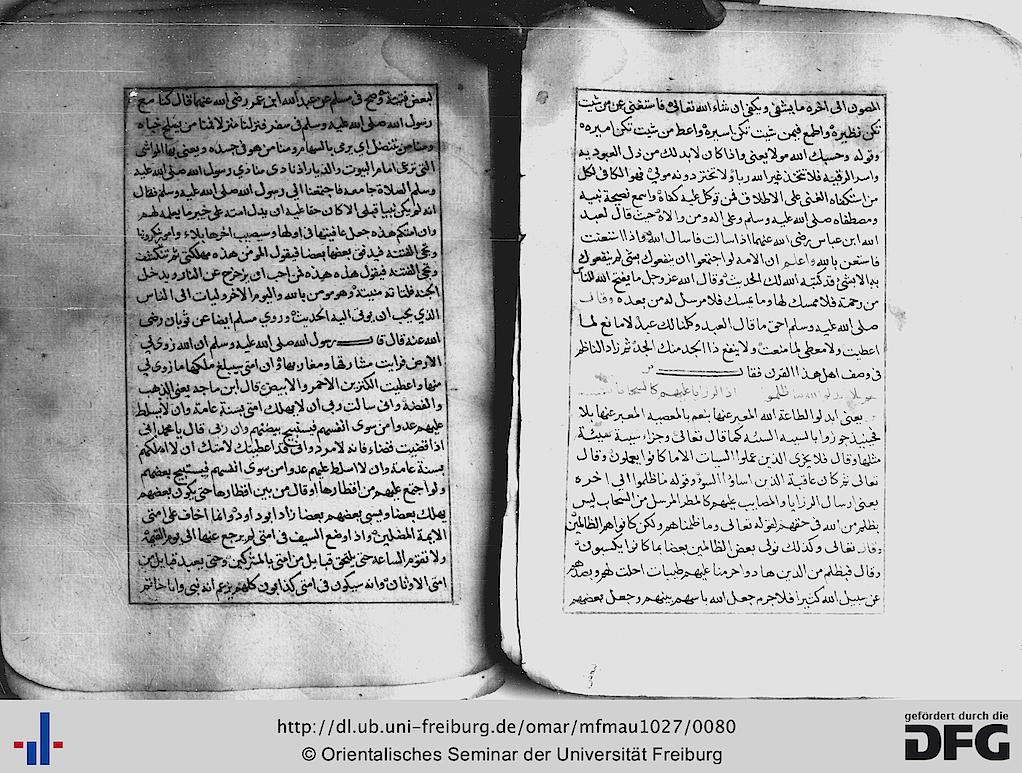 المصون الى اخره ما يشفي ويكفي ان شاء الله تعالى فاستغن عن من شيت
تكن نظيره واطمع فيمن شيت تكن اسيره واعط من شيت تكن اميره
وقوله وحسبك الله مولا يعني واذا كان لابد لك من ذل العبوديه
واسر الرقيه فلا تتخذ غير الله ربا ولا تختر دونه مولي فهو الكافي لكل
من استكفاه الغني على الاطلاق فمن توكل عليه كفاه واسمع نصيحة نبيه
ومصطفاه صلى الله عليه وسلم وعلى اله ومن والاه حيث قال لعبد
الله ابن عباس رضى الله عنهما اذا سالت فاسال الله واذا استعنت
فاستعن بالله واعلم ان الامه لو اجتمعوا ان ينفعوك بشي لم ينفعوك
به الا بشي قد كتبه الله لك الحديث وقال الله عز وجل ما يفتح الله للناس
من رحمة فلا ممسك لها وما يمسك فلا مرسل له من بعده وقال
صلى الله عليه وسلم احق ما قال العبد وكلنا لك عبد لا مانع لما
اعطيت ولا معطي لما منعت ولا ينفع ذا الجد منك الجد ثم زاد الناظم
في وصف اهل هذا القرن فقال
يعني ابدلوا الطاعة الله المعبر عنها بنعم بالمعصيه المعبر عنها بلا
فحينيذ جوزوا بالسيه السيه كما قال تعالى وجزاء سيية سيية
مثلها وقال فلا يجزى الذين عملوا السيات الا ما كانوا يعملون وقال
تعالى ثم كان عاقبة الذين اساوا السوء وقوله ما ظلموا الى اخره
يعني ارسال الرزايا والمصايب عليهم كالمطر المرسل من السحاب ليس
بظلم من الله في حقهم لقوله تعالى وما ظلمناهم ولكن كانوا هم الظالمين
وقال تعالى وكذلك نولى بعض الظالمين بعضا بما كانوا يكسبون
وقال فبظلم من الذين هادوا حرمنا عليهم طيبات احلت لهم وبصدهم
عن سبيل الله كثيرا فلا جرم جعل الله باسهم بينهم وجعل بعضهم
لبعض فتنة وصح في مسلم عن عبد الله ابن عمر رضى الله عنهما قال كنا مع
رسول الله صلى الله عليه وسلم في سفر فنزلنا منزلا فمنا من يصلح خباه
ومنا من ينتضل اي يرمى بالسهام ومنا من هو في جسده ويعني بها المواشي
التي ترعى امام البيوت والديار اذ نادى منادي رسول الله صلى الله عليه
وسلم الصلاة جامعه فاجتمعنا الى رسول الله صلى الله عليه وسلم فقال
انه لم يكن نبيا قبلي الا كان حقا عليه ان يدل امته على خير ما يعلمه لهم
وان امتكم هذه جعل عافيتها في اولها وسيصيب اخرها بلاء وامور تنكرونها
وتجي الفتنه فيدفق بعضها بعضا فيقول المومن هذه مهلكتي ثم تنكشف
وتجي الفتنه فيقول هذه هذه فمن احب ان يزحزح عن النار ويدخل
الجنه فلتاته منيته وهو مومن بالله واليوم الاخر وليات الى الناس
الذي يحب ان يوتى اليه الحديث وروي مسلم ايضا عن ثوبان رضى
الله عنه قال قال رسول الله صلى الله عليه وسلم ان الله زوى لي
الارض فرايت مشارقها ومغاربها وان امتي سيبلغ ملكها ما زوى لي
منها واعطيت الكنزين الاحمر والابيض قال ابن ماجه يعني الذهب
والفضة واني سالت ربي ان لا يهلك امتي بسنة عامة وان لا يسلط
عليهم عدوا من سوى انفسهم فيستبيح بيضتهم وان ربي قال يا محمد اني
اذا قضيت قضاء فانه لا يرد واني قد اعطيتك لامتك ان لا اهلكهم
بسنة عامة وان لا اسلط عليهم عدوا من سوى انفسهم فيستبيح بعضهم
ولو اجتمع عليهم من اقطارها او قال من بين اقطارها حتى يكون بعضهم
يهلك بعضا ويسبى بعضهم بعضا زاد ابو داود وانما اخاف على امتي
الايمة المضلين واذا وضع السيف في امتي لم يرجع عنها الى يوم القيمة
ولا تقوم الساعة حتى يلتحق قبايل من امتي بالمشركين وحتى يعبد قبايل من
امتي الاوثان وانه سيكون في امتي كذابون كلهم يزعم انه نبي وانا خاتم
http://dl.ub.uni-freiburg.de/omar/mfmau1027/0080
© Orientalisches Seminar der Universität Freiburg
gefördert durch die
DFG